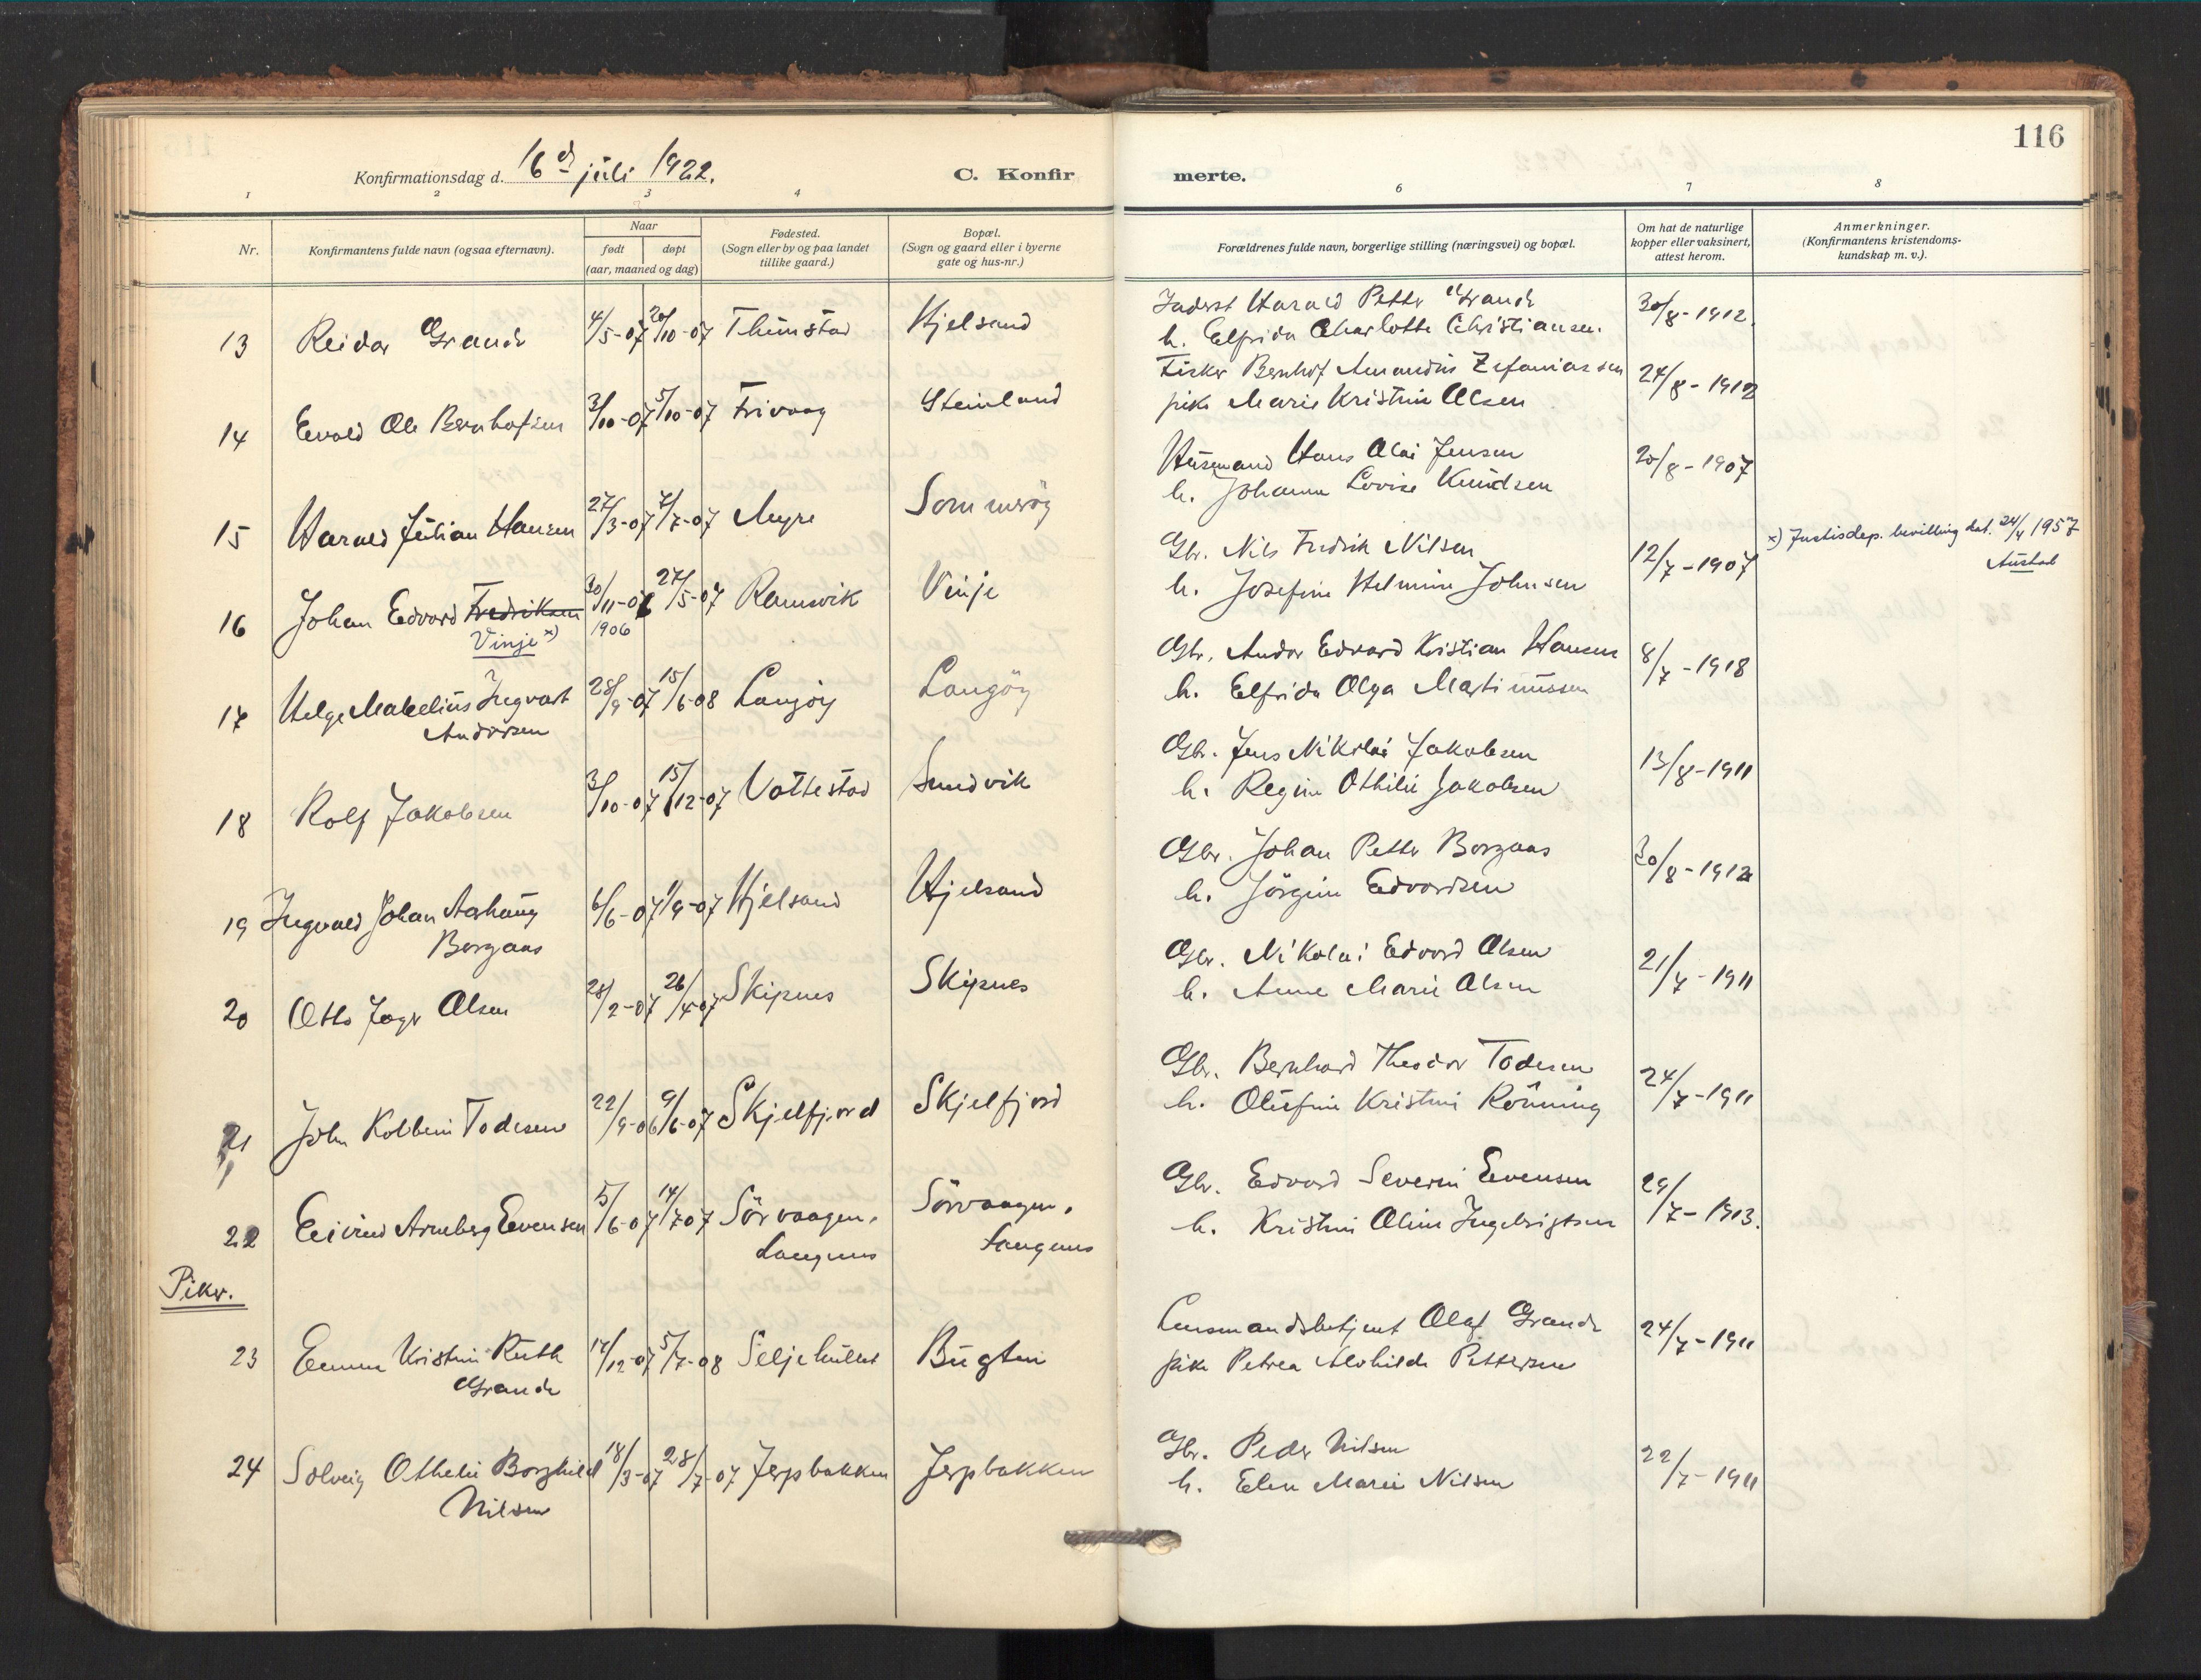 116
Konfirmationsdag d. 16de juli 1922.
C. Konfir
merte.
1 2 3 4 6 7 8
Nr.
Konfirmantens fulde navn (ogsaa efternavn).
Naar
født døpt
(aar, maaned og dag)
Fødested.
(Sogn eller by og paa landet
tillike gaard.)
Bopæl.
(Sogn og gaard eller i byerne
gate og hus-nr.)
Forældrenes fulde navn, borgerlige stilling (næringsvei) og bopæl.
Om hat de naturlige
kopper eller vaksinert,
attest herom.
Anmerkninger.
(Konfirmantens kristendoms-
kundskap m. v.).
13 Reidar Grande 4/5-07 20/10-07 Thunstad Hjelsand
Harald Petter Grande 30/8-1912.
h. Elfrida Charlotte Christiansen.
14 Evald Ole Bernhofsen 3/10-07 5/10-07 Frivaag Steinland
Fisker Bernhof Amandus Zefaniassen 24/8-1912
pike Marie Kristine Olsen
15 Harald Julian Hansen 27/3-07 7/7-07 Myre Sommerøy
Husmand Hans Olai Jensen 20/8-1907
h. Johanna Lovise Knudsen
16 Johan Edvard Fredriksen 30/11-06 27/5-07 Ramsvik Vinje
Vinje x) 1906
Gbr. Nils Fredrik Nilsen 12/7-1907
h. Josefine Helmine Johnsen
x) Justisdep. bevilling dat. 24/4 1957
Austad
17 Helge Makelius Ingvart 28/9-07 15/6-08 Langøy Langøy
Andorsen
Gbr. Andor Edvard Kristian Hansen 8/7-1918
h. Elfrida Olga Martinussen
18 Rolf Jakobsen 3/10-07 15/12-07 Vottestad Sundvik
Gbr. Jens Nikolai Jakobsen 13/8-1911
h. Regine Othilie Jakobsen
19 Ingvald Johan Ashaug 6/6-07 1/9-07 Hjelsand Hjelsand
Borgaas
Gbr. Johan Petter Borgaas 30/8-1912
h. Jörgine Edvardsen
20 Otto Olsen 28/2-07 26/4-07 Skipnes Skipnes
Gbr. Nikolai Edvard Olsen 21/7-1911
h. Anne Marie Olsen
21 John Kolbein Todesen 22/9-06 9/6-07 Skjelfjord Skjelfjord
Gbr. Bernhard Theodor Todesen 24/7-1911
h. Olufine Kristine Rönning
22 Eivind Arneberg Evensen 5/6-07 14/7-07 Sörvaagen, Sörvaagen,
Langenes Langenes
Gbr. Edvard Severin Evensen 29/7-1913.
h. Kristine Oline Ingebrigtsen
Piker.
23 Emma Kristine Ruth 17/12-07 5/7-08 Seljehullet Bugten
Grande
Lensmandsbetjent Olaf Grande 24/7-1911
pike Petrea Alvhilde Pettersen
24 Solveig Othelie Borghild 18/3-07 28/7-07 Jerpbakken Jerpbakken
Nilsen
Gbr. Peder Nilsen 22/7-1911
h. Elen Marie Nilsen